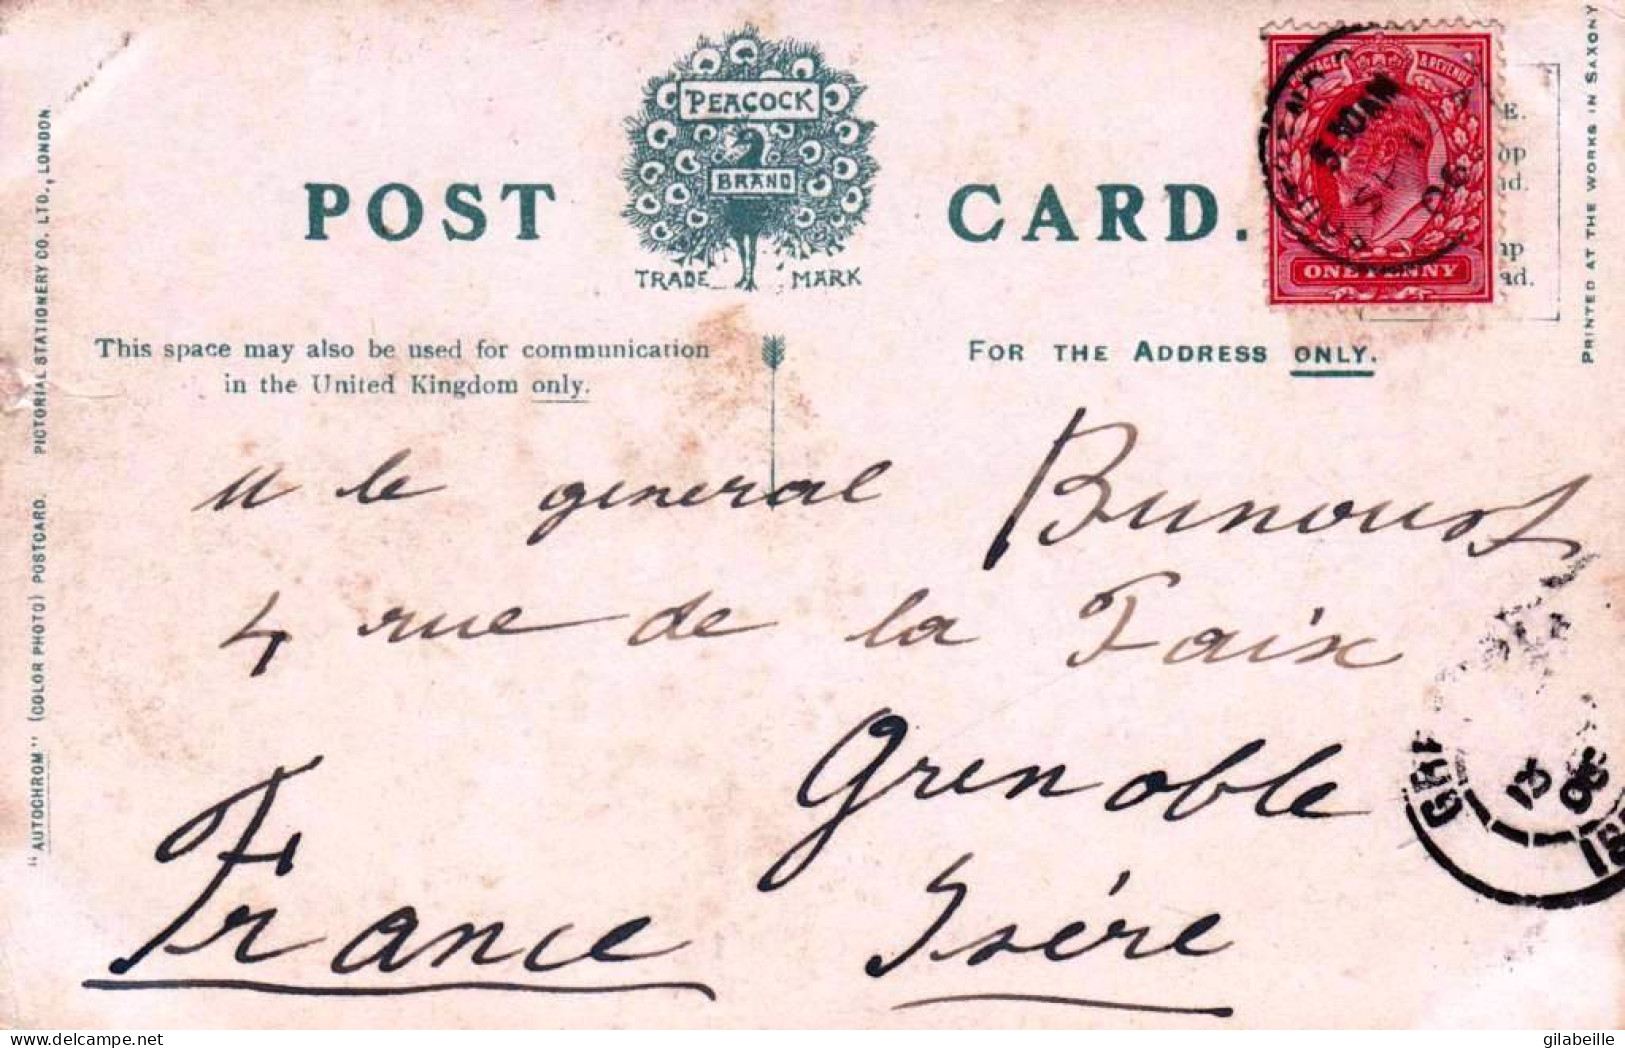 POST CARD.
PEACOCK
BRAND
TRADE MARK
POSTAGE & REVENUE
ONE PENNY
5 30AM
SP 11
06
This space may also be used for communication
in the United Kingdom only.
FOR THE ADDRESS ONLY.
"AUTOCHROM" (COLOR PHOTO) POSTCARD. PICTORIAL STATIONERY CO. LTD., LONDON
PRINTED AT THE WORKS IN SAXONY
M le general
4 rue de la Paix
Grenoble
France Isère
13
06
gilabeille